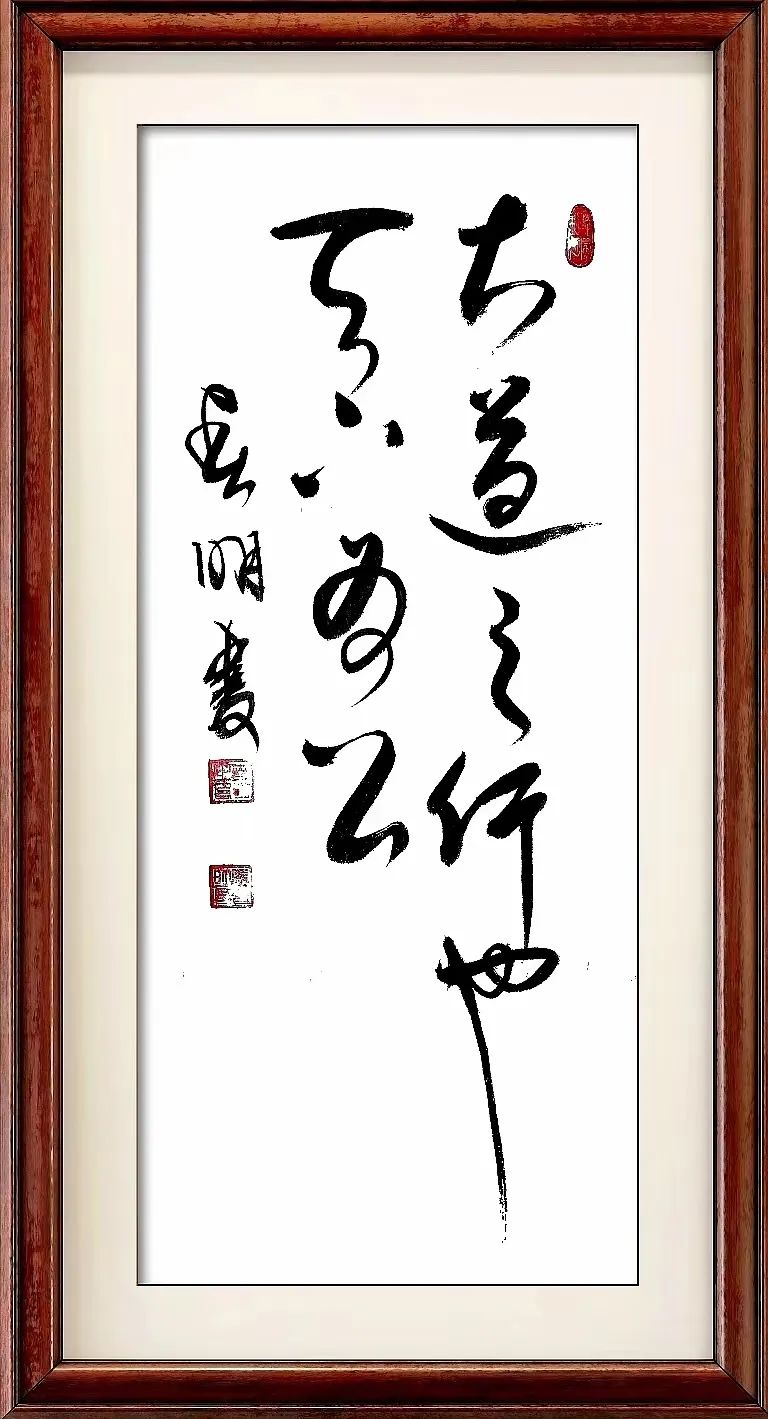 大道之行也
天下为公
春明书